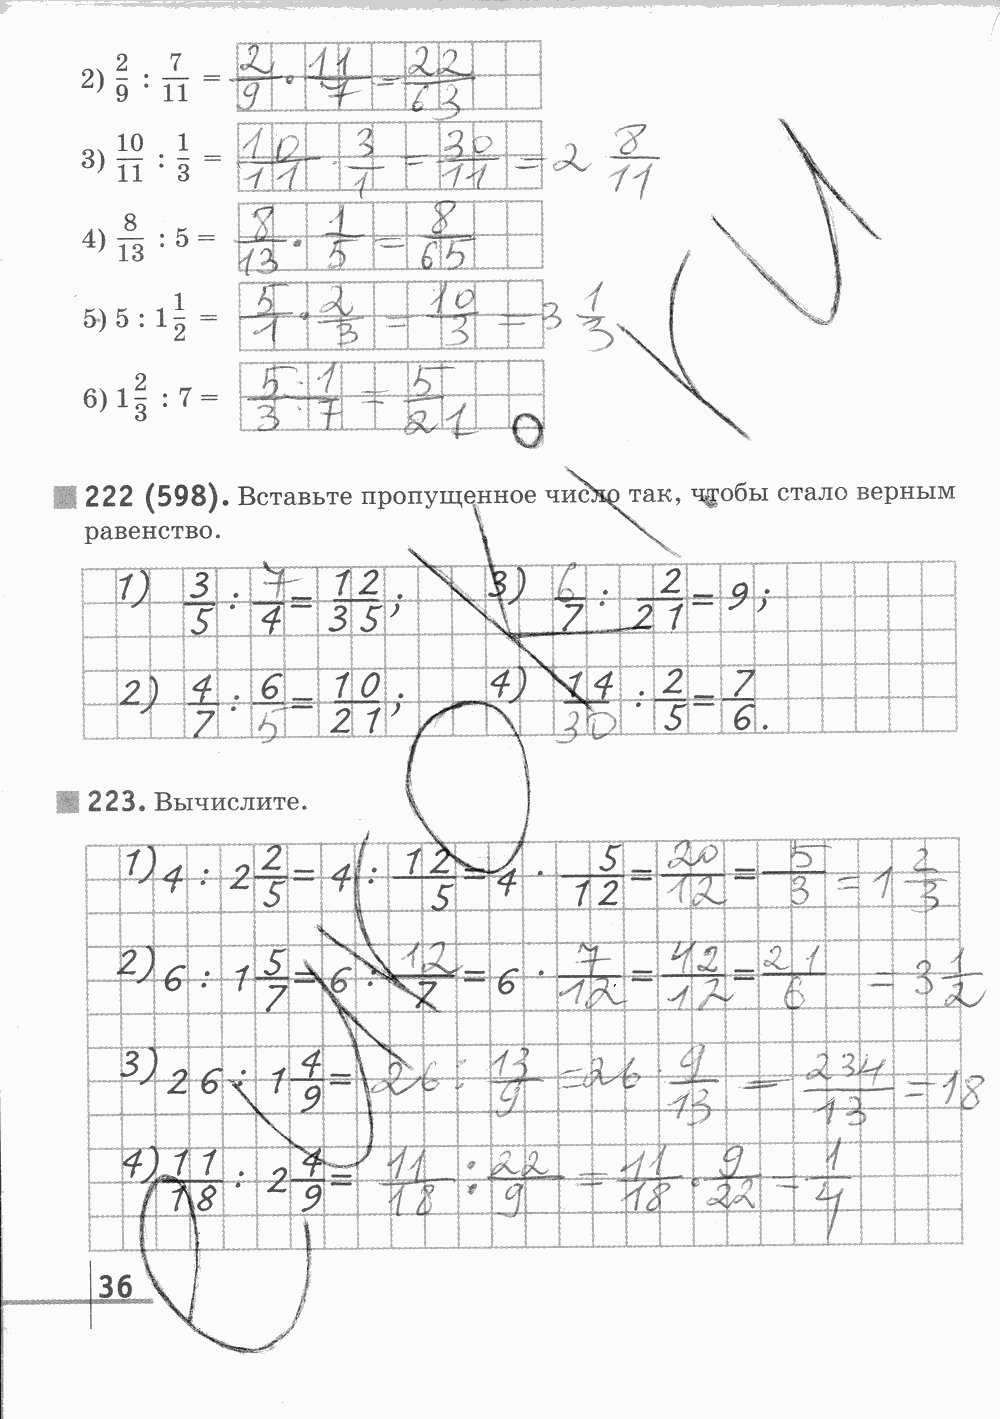 2) 2/9 : 7/11 = 2/9 · 11/7 = 22/63
3) 10/11 : 1/3 = 10/11 · 3/1 = 30/11 = 2 8/11
4) 8/13 : 5 = 8/13 · 1/5 = 8/65
5) 5 : 1 1/2 = 5/1 · 2/3 = 10/3 = 3 1/3
6) 1 2/3 : 7 = 5/3 : 1/7 = 5/21
222 (598). Вставьте пропущенное число так, чтобы стало верным
равенство.
1) 3/5 : 7/4 = 12/35; 3) 6/7 : 2/21 = 9;
2) 4/7 : 6/5 = 10/21; 4) 14/30 : 2/5 = 7/6.
223. Вычислите.
1) 4 : 2 2/5 = 4 : 12/5 = 4 · 5/12 = 20/12 = 5/3 = 1 2/3
2) 6 : 1 5/7 = 6 : 12/7 = 6 · 7/12 = 42/12 = 21/6 = 3 1/2
3) 26 : 1 4/9 = 26 : 13/9 = 26 · 9/13 = 234/13 = 18
4) 11/18 : 2 4/9 = 11/18 : 22/9 = 11/18 · 9/22 = 1/4
36